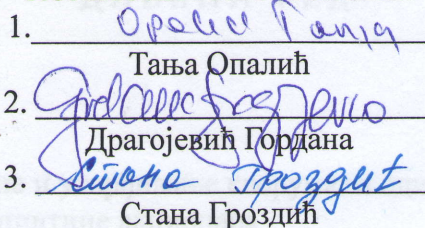 1. Опалић Тања
Тања Опалић
2.
Драгојевић Гордана
3. Стана Гроздић
Стана Гроздић